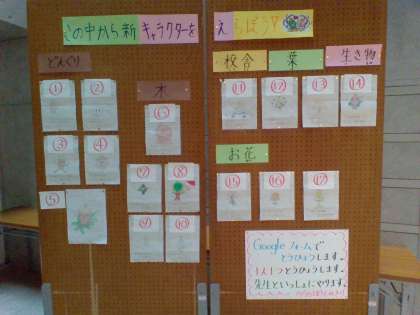 この中から新キャラクターをえらぼう！
どんぐり
①
②
③
④
⑤
木
⑥
⑦
⑧
⑨
⑩
校舎
⑪
葉
⑫
⑬
生き物
⑭
お花
⑮
⑯
⑰
Googleフォームで
とうひょうします。
1人1つとうひょうします。
先生といっしょにやります。